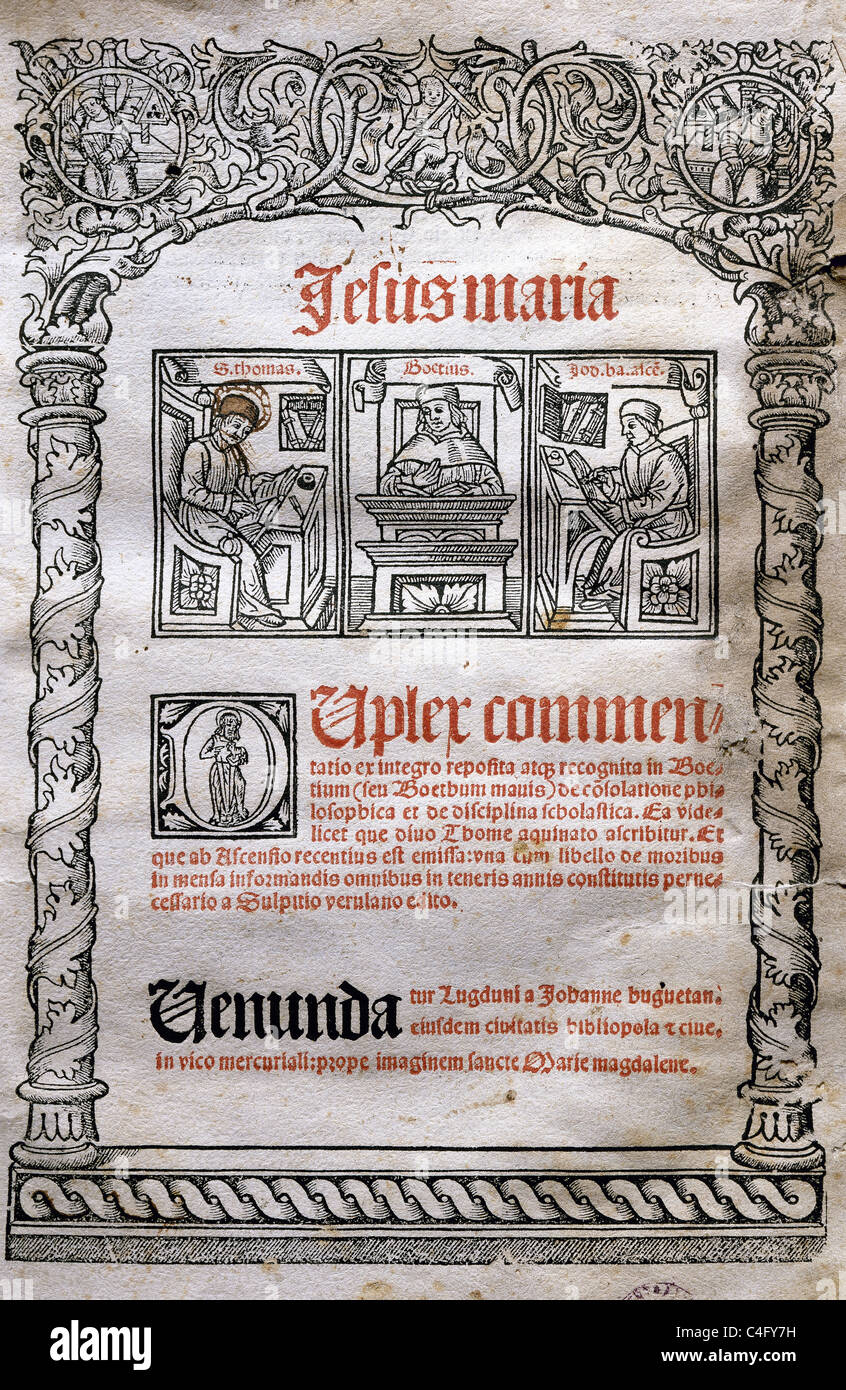 Jesus maria
S. thomas.
Boetius.
Jod. ba. ascē.
DUplex commen-
tatio ex integro reposita atqꝫ recognita in Boe-
tium (seu Boethum mauis) de cōsolatione phi-
losophica et de disciplina scholastica. Ea vide-
licet que diuo Thome aquinato ascribitur. Et
que ab Ascensio recentius est emissa: vna cum libello de moribus
in mensa informandis omnibus in teneris annis constitutis perne-
cessario a Sulpitio verulano edito.
Uenunda
tur Lugduni a Johanne huguetan:
eiusdem ciuitatis bibliopola ⁊ ciue.
in vico mercuriali: prope imaginem sancte Marie magdalene.
a
alamy
Image ID: C4FY7H
www.alamy.com